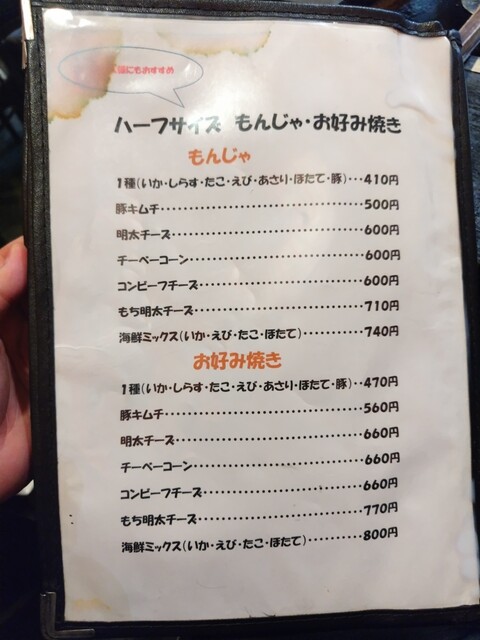 にもおすすめ
ハーフサイズ もんじゃ・お好み焼き
もんじゃ
1種(いか・しらす・たこ・えび・あさり・ほたて・豚)・・・410円
豚キムチ・・・・・・・・・・・・・・・・・・・・・・・・・・・・・・500円
明太チーズ・・・・・・・・・・・・・・・・・・・・・・・・・・・・600円
チーベーコーン・・・・・・・・・・・・・・・・・・・・・・・・・・600円
コンビーフチーズ・・・・・・・・・・・・・・・・・・・・・・・・600円
もち明太チーズ・・・・・・・・・・・・・・・・・・・・・・・・・710円
海鮮ミックス(いか・えび・たこ・ほたて)・・・・・・・・・・740円
お好み焼き
1種(いか・しらす・たこ・えび・あさり・ほたて・豚)・・470円
豚キムチ・・・・・・・・・・・・・・・・・・・・・・・・・・・・・560円
明太チーズ・・・・・・・・・・・・・・・・・・・・・・・・・・・660円
チーベーコーン・・・・・・・・・・・・・・・・・・・・・・・・・660円
コンビーフチーズ・・・・・・・・・・・・・・・・・・・・・・・660円
もち明太チーズ・・・・・・・・・・・・・・・・・・・・・・・・770円
海鮮ミックス(いか・えび・たこ・ほたて)・・・・・・・・・・800円